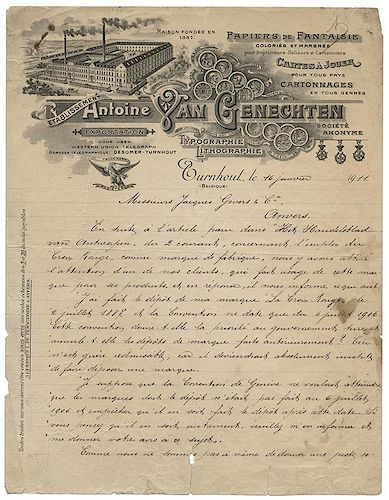 MAISON FONDÉE EN
1837.
PAPIERS DE FANTAISIE
COLORIÉS ET MARBRÉS
pour Imprimeurs-Relieurs et Cartonniers
CARTES À JOUER
POUR TOUS PAYS
CARTONNAGES
EN TOUS GENRES
ETABLISSEMENTS
Antoine VAN GENECHTEN
SOCIÉTÉ
ANONYME
EXPORTATION
CODE USED:
WESTERN UNION TELEGRAPH
ADRESSE TÉLÉGRAPHIQUE: DESOMER-TURNHOUT
TYPOGRAPHIE
LITHOGRAPHIE
Turnhout, le 16 janvier 1911.
(BELGIQUE)
Messieurs Jacques Gevers & Cie
Anvers.
En suite à l'article paru dans "Het Handelsblad
van Antwerpen, du 2 courant, concernant l'emploi du
Croix Rouge, comme marque de fabrique, nous y avons attiré
l'attention d'un de nos clients, qui fait usage de cette marque
pour ses produits, et en réponse, il nous informe ce qui suit
J'ai fait le dépôt de ma marque "La Croix Rouge
juillet et la Convention ne date que du 6 juillet 1906
Cette convention donne t'elle la priorité au gouvernement
annule t'elle les dépôts de marque faits antérieurement? Ceci
n'est guère admissible, car il deviendrait absolument inutile
de faire déposer une marque.
J'y suppose que la Convention de Genève ne voulant atteindre
que les marques dont le dépôt n'était pas fait au 6 juillet
1906 et empêcher qu'il en soit fait le dépôt après cette date. Si
vous pensez qu'il en soit autrement, veuillez m'en informer et
me donner votre avis à ce sujet.
Comme nous ne sommes pas à même de donner une